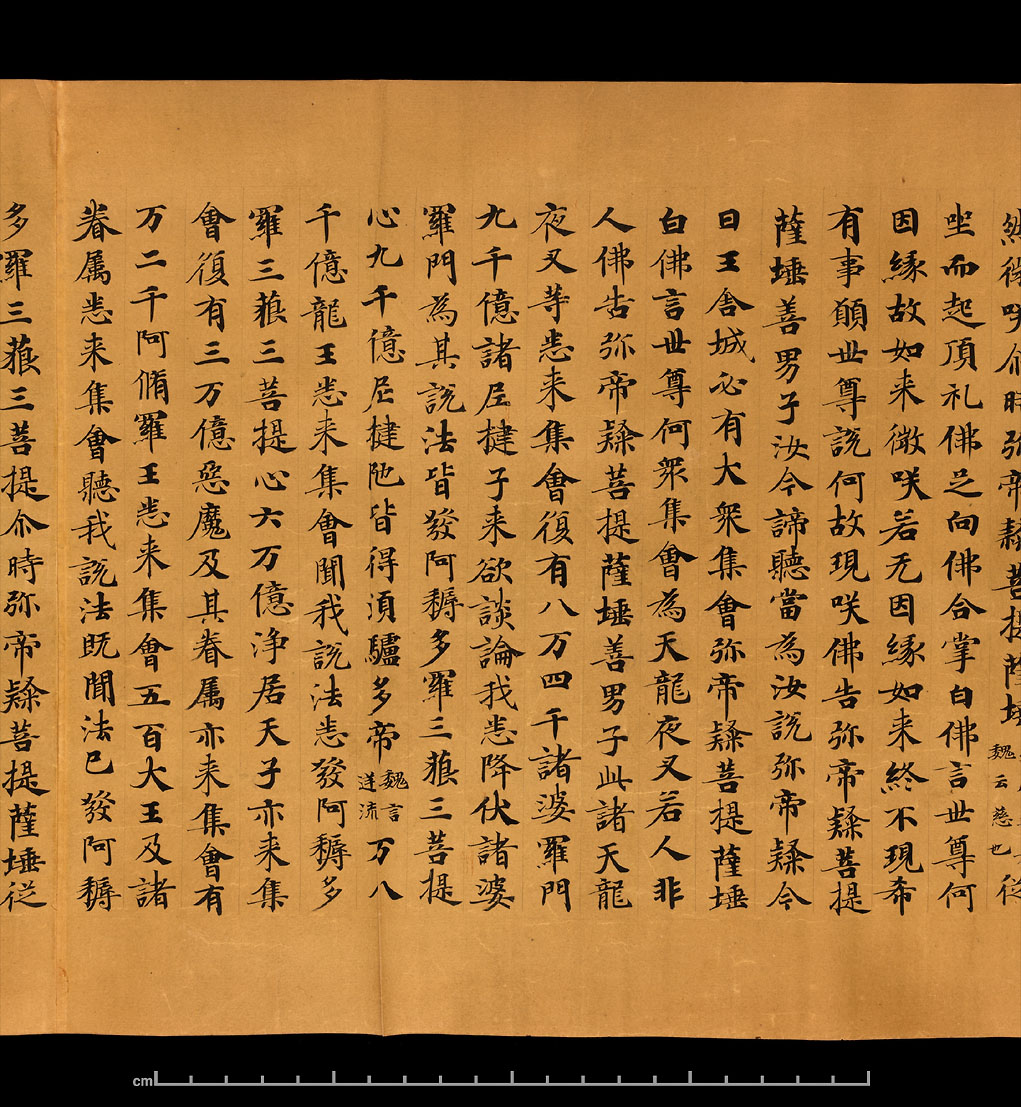 然後咲尒時弥帝隸菩提薩埵魏云慈也從
坐而起頂礼佛足向佛合掌白佛言世尊何
因緣故如来微咲若无因緣如来終不現希
有事願世尊說何故現咲佛告弥帝隸菩提
薩埵善男子汝今諦聽當為汝說弥帝隸今
日王舍城必有大衆集會弥帝隸菩提薩埵
白佛言世尊何衆集會為天龍夜叉若人非
人佛告弥帝隸菩提薩埵善男子此諸天龍
夜叉等悉来集會復有八万四千諸婆羅門
九千億諸尼揵子来欲談論我悉降伏諸婆
羅門為其說法皆發阿耨多羅三藐三菩提
心九千億尼揵陁皆得湏驢多帝魏言逆流万八
千億龍王悉来集會聞我說法悉發阿耨多
羅三藐三菩提心六万億净居天子亦来集
會復有三万億惡魔及其眷属亦来集會有
万二千阿脩羅王悉来集會五百大王及諸
眷属悉来集會聽我說法既聞法已發阿耨
多羅三藐三菩提尒時弥帝隸菩提薩埵從
cm